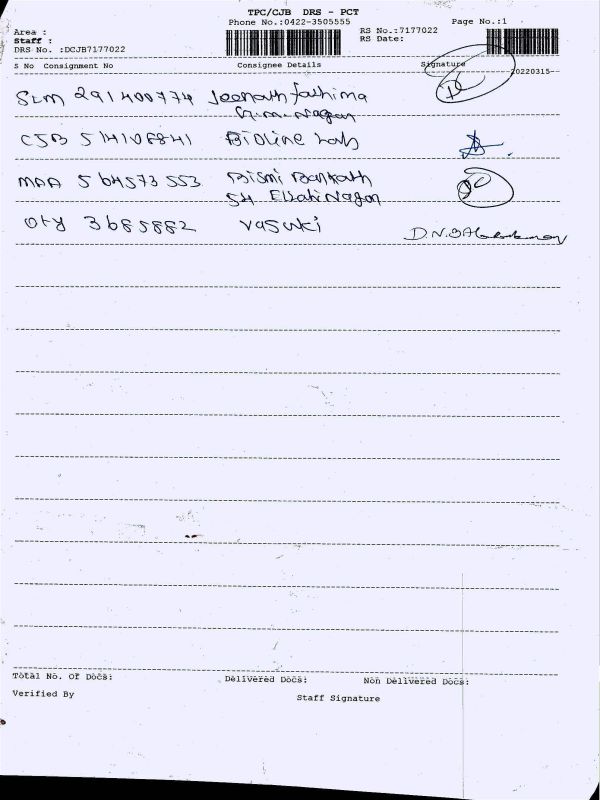 TPC/CJB DRS - PCT
Phone No.:0422-3505555 Page No.:1
Area : RS No.:7177022
Staff : RS Date:
DRS No. :DCJB7177022
S No Consignment No Consignee Details Signature
20220315
SLM 291400774 Jeenath fathima
G.M. Nagar
CJB 514106841 Bioline Lab
MAA 564573553 Bismi
54
OTY 3685882 Vasuki
Total No. Of Docs: Delivered Docs: Non Delivered Docs:
Verified By Staff Signature